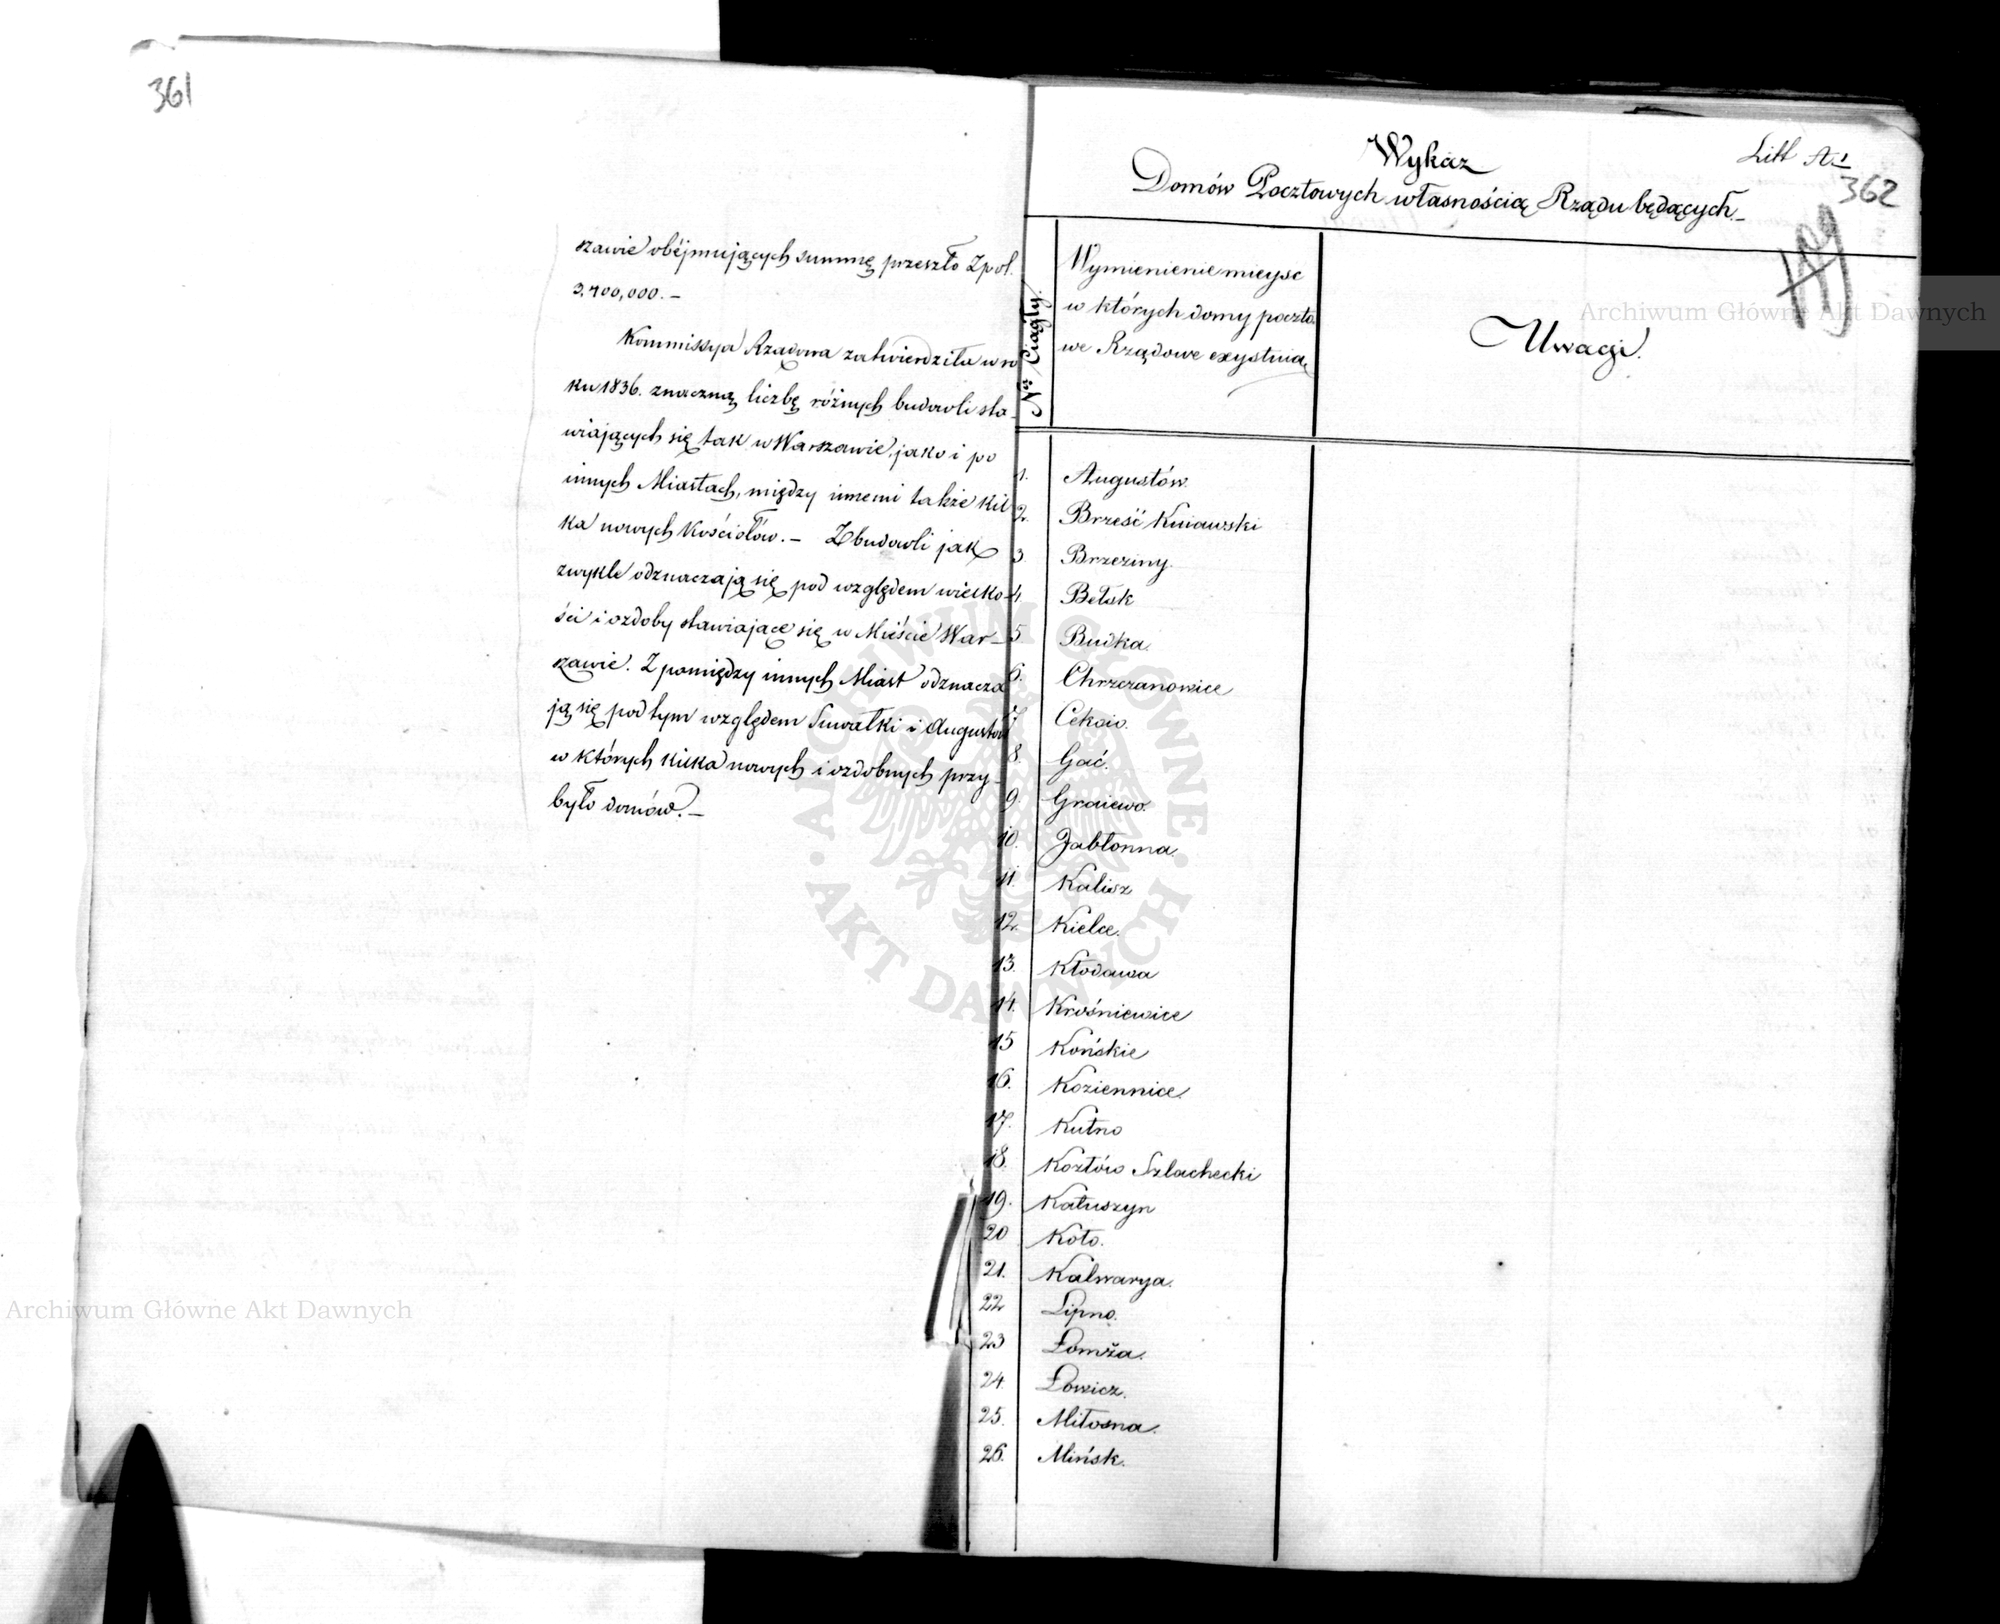 361
szawie obejmujących summę przeszło Zpol.
3,400,000. –
Kommissya Rządowa zatwierdziła w ro
ku 1836. znaczną liczbę różnych budowli sta-
wiających się tak w Warszawie, jako i po
innych Miastach, między innemi także kil-
ka nowych kościołów. – Z budowli jak
zwykle odznaczają się pod względem wielko-
ści i ozdoby stawiające się w Mieście War-
szawie. Z pomiędzy innych Miast odznacza
ją się pod tym względem Suwałki i Augustów
w których kilka nowych i ozdobnych przy-
było domów. –
Litt A. 1
362
Wykaz
Domów Pocztowych własnością Rządu będących. –
Nr Ciągły.
Wymienienie mieysc
w których domy poczto
we Rządowe exystuią
Uwagi.
1. Augustów.
2. Brześć Kuiawski
3 Brzeziny.
4. Bełsk
5 Budka.
6. Chrzczanowice
7 Cekow.
8. Gać.
9. Graiewo.
10. Jabłonna.
11. Kalisz
12. Kielce.
13. Kłodawa
14. Krośniewice
15 Końskie
16. Koziennice.
17. Kutno
18. Kozłów Szlachecki
19. Kałuszyn
20 Koło.
21. Kalwarya.
22 Lipno.
23 Łomża.
24. Łowicz.
25. Miłosna.
26. Mińsk.
Archiwum Główne Akt Dawnych
Archiwum Główne Akt Dawnych
ARCHIWUM GŁÓWNE
AKT DAWNYCH